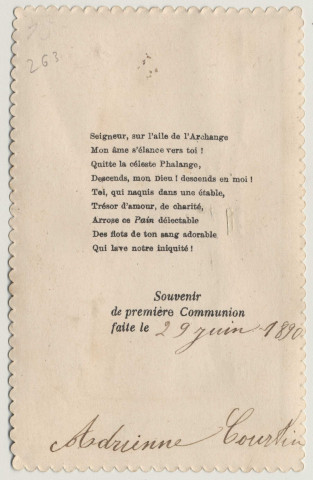 263
Seigneur, sur l'aile de l'Archange
Mon âme s'élance vers toi !
Quitte la céleste Phalange,
Descends, mon Dieu ! descends en moi !
Toi, qui naquis dans une étable,
Trésor d'amour, de charité,
Arrose ce Pain délectable
Des flots de ton sang adorable
Qui lave notre iniquité !
Souvenir
de première Communion
faite le 29 juin 1890
Adrienne Courtin